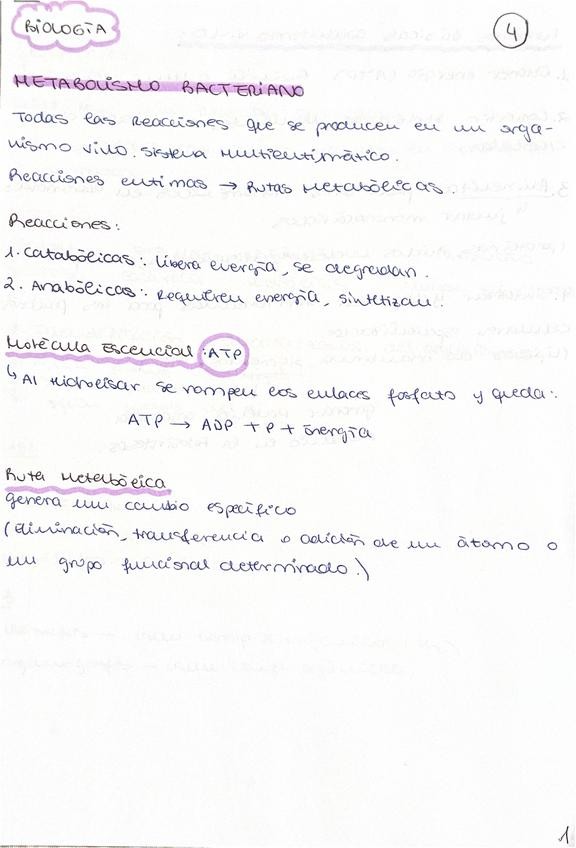 BIOLOGÍA
4
METABOLISMO BACTERIANO
Todas las Reacciones que se producen en un orga-
nismo vivo. sistema multientimático.
Reacciones entimas → Rutas Metabólicas.
Reacciones:
1. Catabólicas: libera energía, se degradan.
2. Anabólicas: Requieren energía, sintetizan.
Molécula Escencial: ATP
↳ Al hidrolisar se rompen los enlaces fosfato y queda:
ATP → ADP + P + Energía
Ruta Metabólica
genera un cambio específico
(Eliminación, transferencia o adición de un átomo o
un grupo funcional determinado.)
1